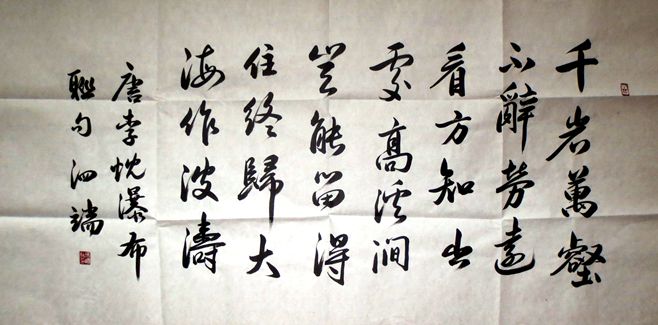 千岩萬壑
不辭勞遠
看方知出
處高溪澗
豈能留得
住終歸大
海作波濤
唐李忱瀑布
聯句泗端